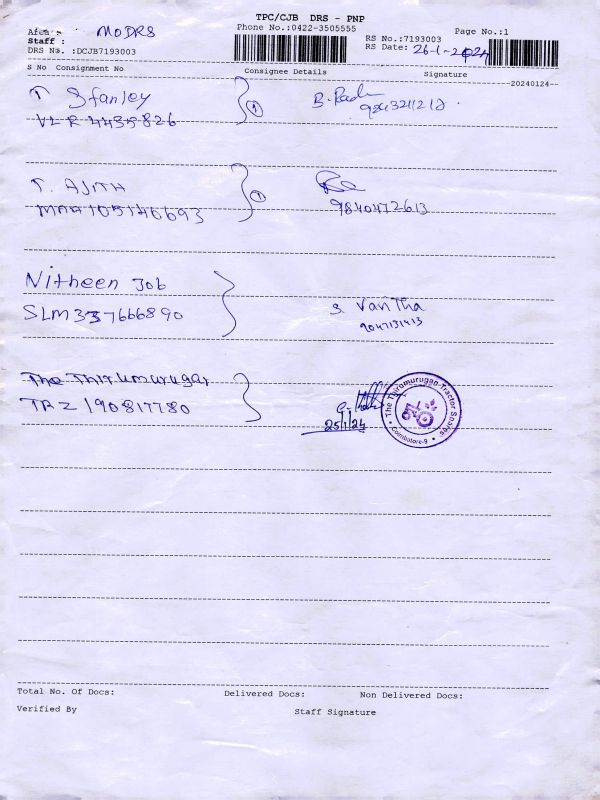 TPC/CJB DRS - PNP
Phone No.:0422-3505555
Page No.:1
Area : MODRS
Staff :
RS No.:7193003
DRS No. :DCJB7193003
RS Date: 26-1-2024
S No Consignment No
Consignee Details
Signature
--20240124--
T Stanley
VLR 4435826
1
9843211212
T. AJITH
MAA105140693
1
9840472613
Nitheen Job
SLM337666890
S. Vanitha
9047131413
The Thirumurugan
TRZ 190817780
25/1/24
The Thirumurugan Tractor Spares
Coimbatore-9
Total No. Of Docs:
Delivered Docs:
Non Delivered Docs:
Verified By
Staff Signature